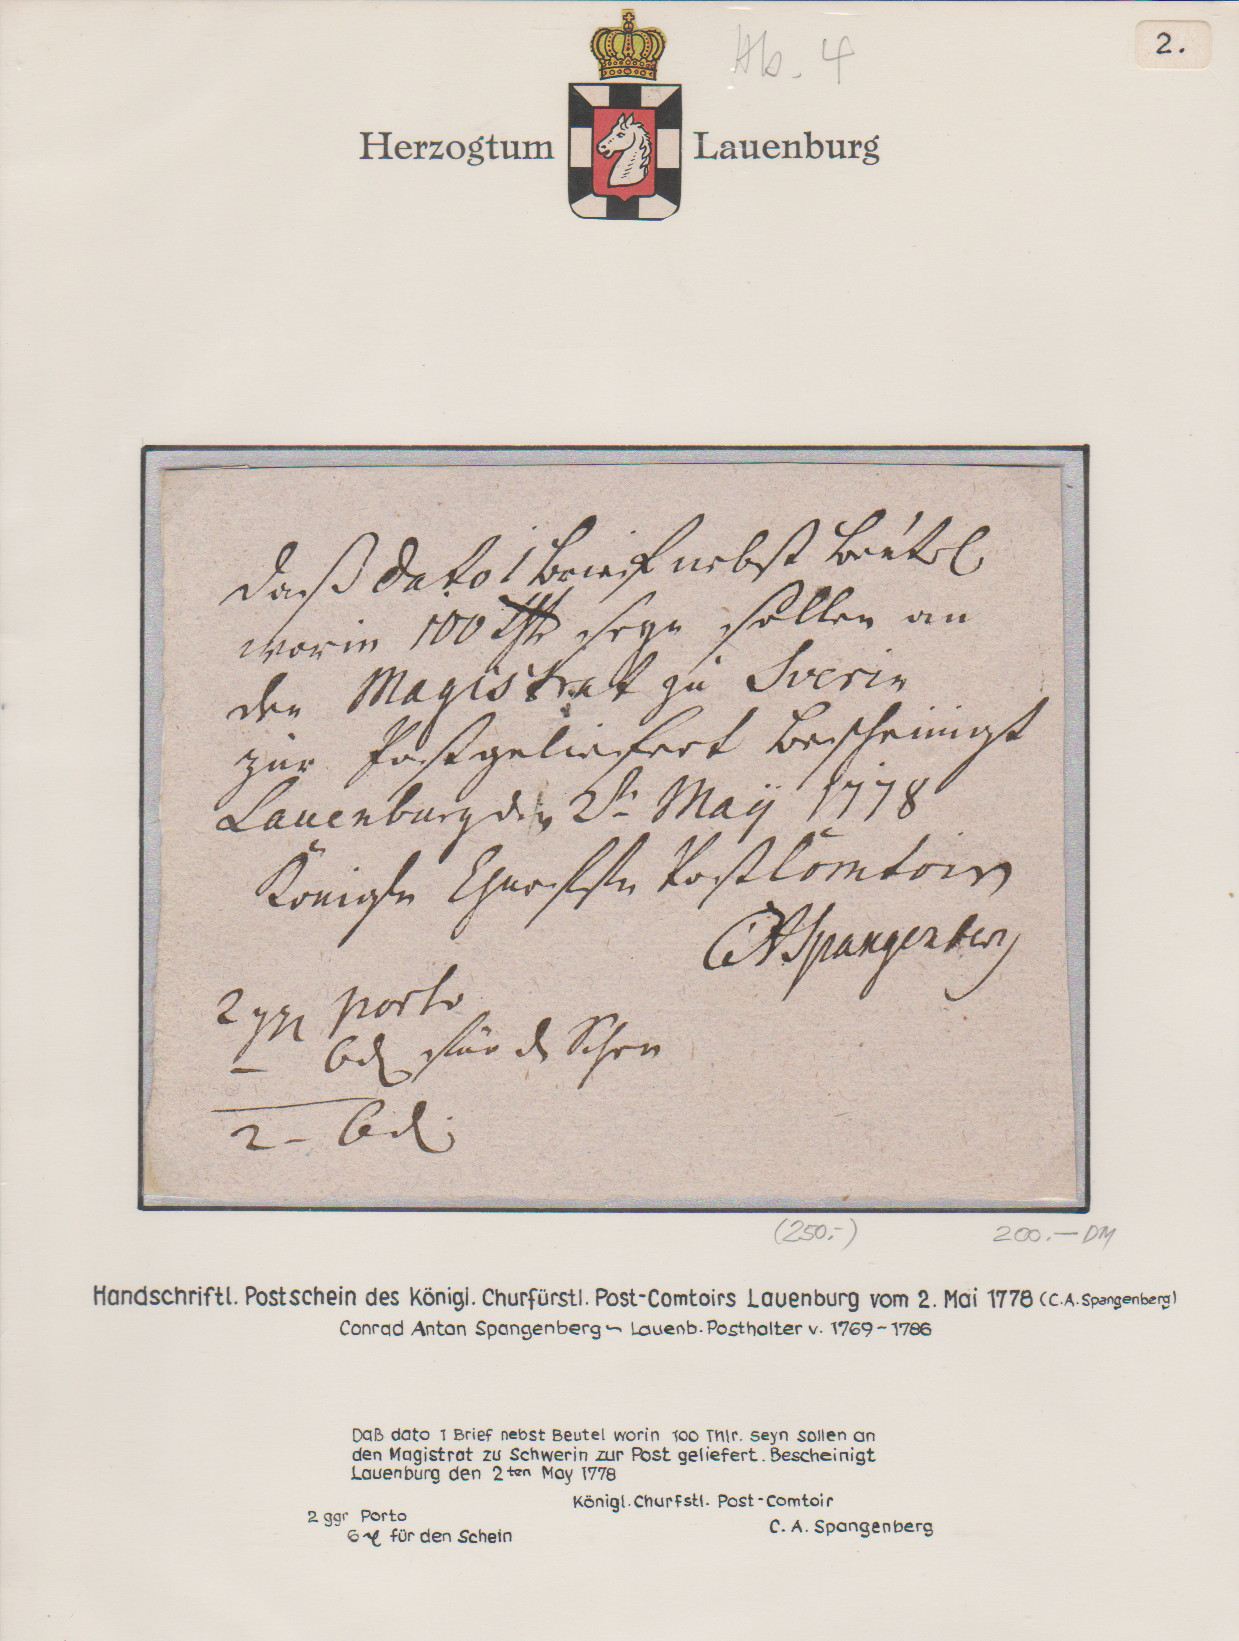 Ab. 4
2.
Herzogtum Lauenburg
daß dato 1 Brief nebst Beutel
worin 100 Thlr seyn sollen an
den Magistrat zu Sverin
zur Post geliefert bescheinigt
Lauenburg den 2t May 1778
Königl Churfstl Post Comtoir
CASpangenberg
2 ggl porto
— 6d für d Schein
2 – 6d.
(250.-)
200.— DM
Handschriftl. Postschein des Königl. Churfürstl. Post-Comtoirs Lauenburg vom 2. Mai 1778 (C.A. Spangenberg)
Conrad Anton Spangenberg ~ Lauenb. Posthalter v. 1769 - 1786
Daß dato 1 Brief nebst Beutel worin 100 Thlr. seyn sollen an
den Magistrat zu Schwerin zur Post geliefert. Bescheinigt
Lauenburg den 2ten May 1778
Königl. Churfstl. Post-Comtoir
2 ggr Porto
C. A. Spangenberg
6 ₰ für den Schein